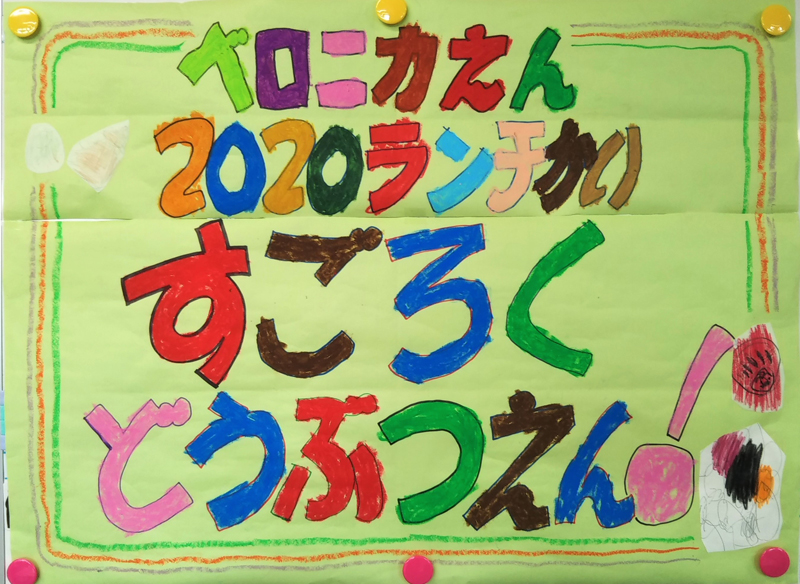 ベロニカえん
2020ランチかい
すごろく
どうぶつえん!